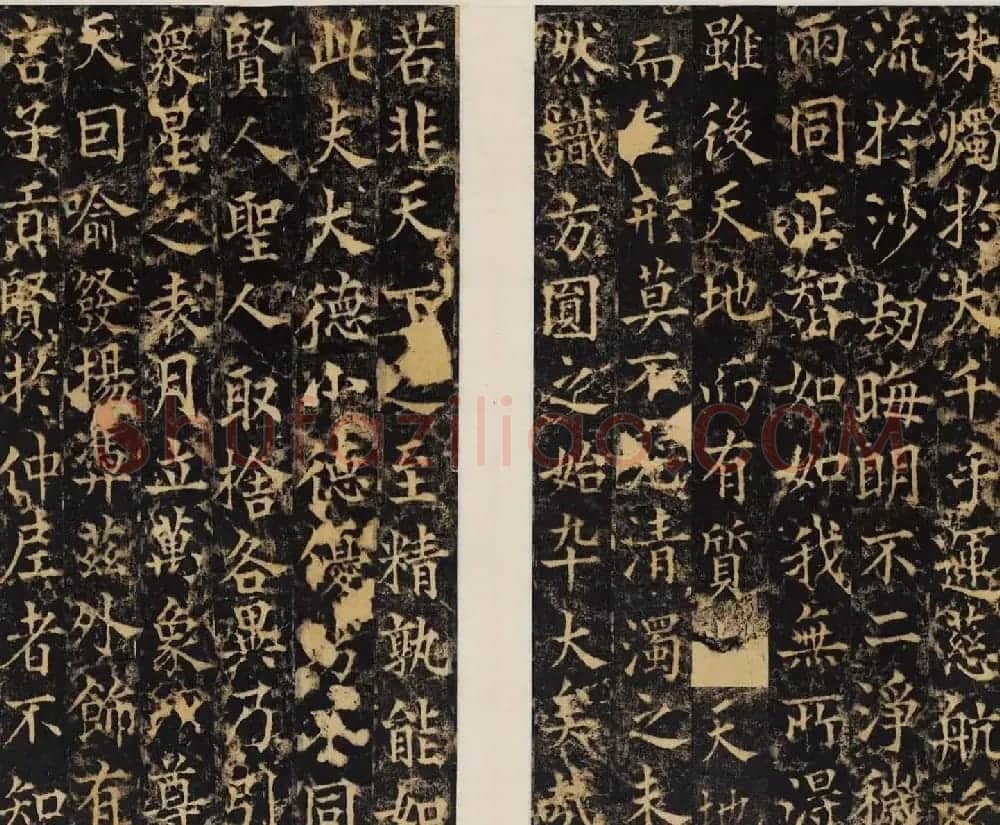 永燭扵大千手運慈航
流扵沙劫晦明不二淨穢
兩同正智如如我無所淂
雖後天地而有質天地
而生形莫不先清濁之未
然識方圓之始卒大矣哉
若非天下之至精孰能如
此夫大德小德優劣不同
賢人聖人取捨各異乃引
眾星之表月立萬象之尊
天因喻發揚昇茲外飾有
言子貢賢扵仲尼者不知
Shufaziliao.COM